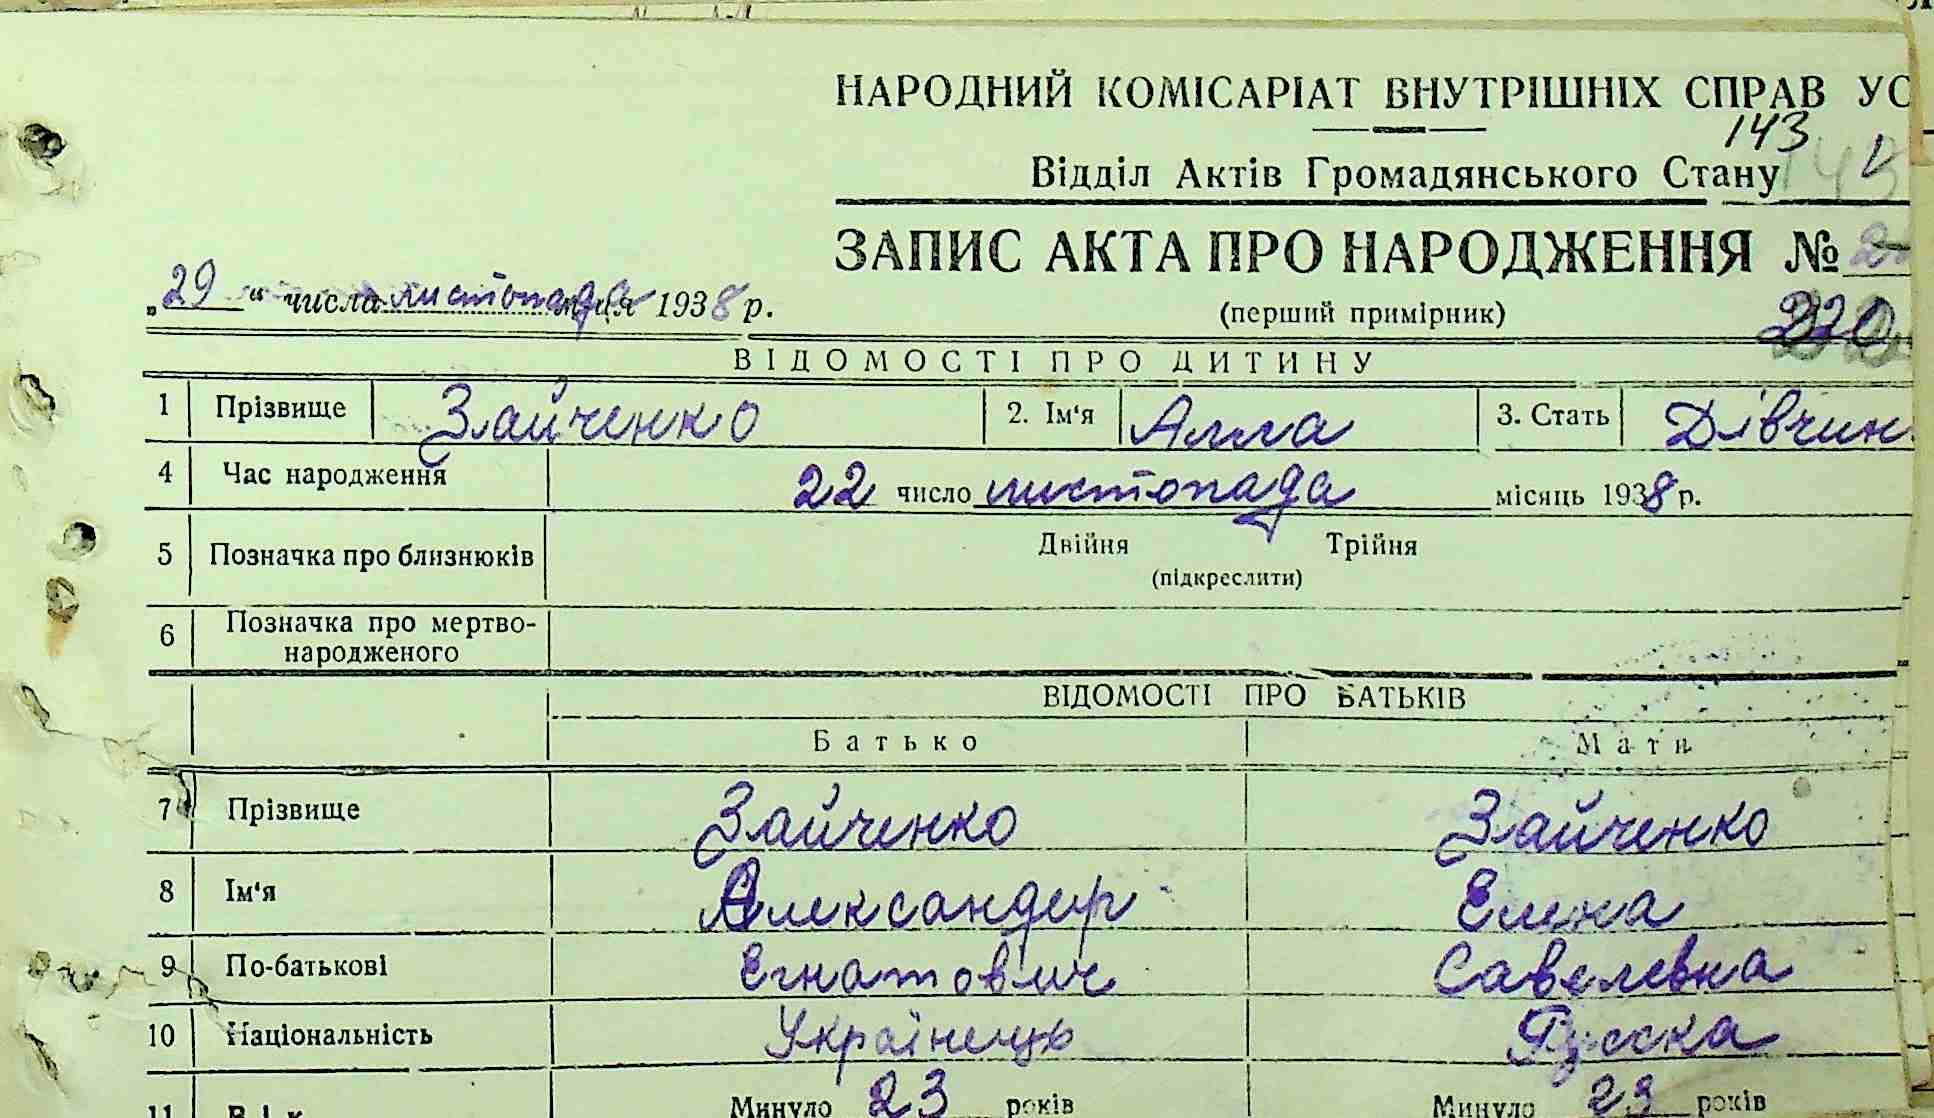 НАРОДНИЙ КОМІСАРІАТ ВНУТРІШНІХ СПРАВ УС
143
Відділ Актів Громадянського Стану
ЗАПИС АКТА ПРО НАРОДЖЕННЯ №
„29“ числа листопада місяця 1938 р.
(перший примірник)
220
ВІДОМОСТІ ПРО ДИТИНУ
1 Прізвище Зайченко 2. Ім'я Алла 3. Стать Дівчин
4 Час народження 22 число листопада місяць 1938 р.
5 Позначка про близнюків Двійня Трійня
(підкреслити)
6 Позначка про мертво-
народженого
ВІДОМОСТІ ПРО БАТЬКІВ
Батько Мати
7 Прізвище Зайченко Зайченко
8 Ім'я Александр Елена
9 По-батькові Егнатович Савелевна
10 Національність Українець Русска
11 Вік Минуло 23 років Минуло 23 років